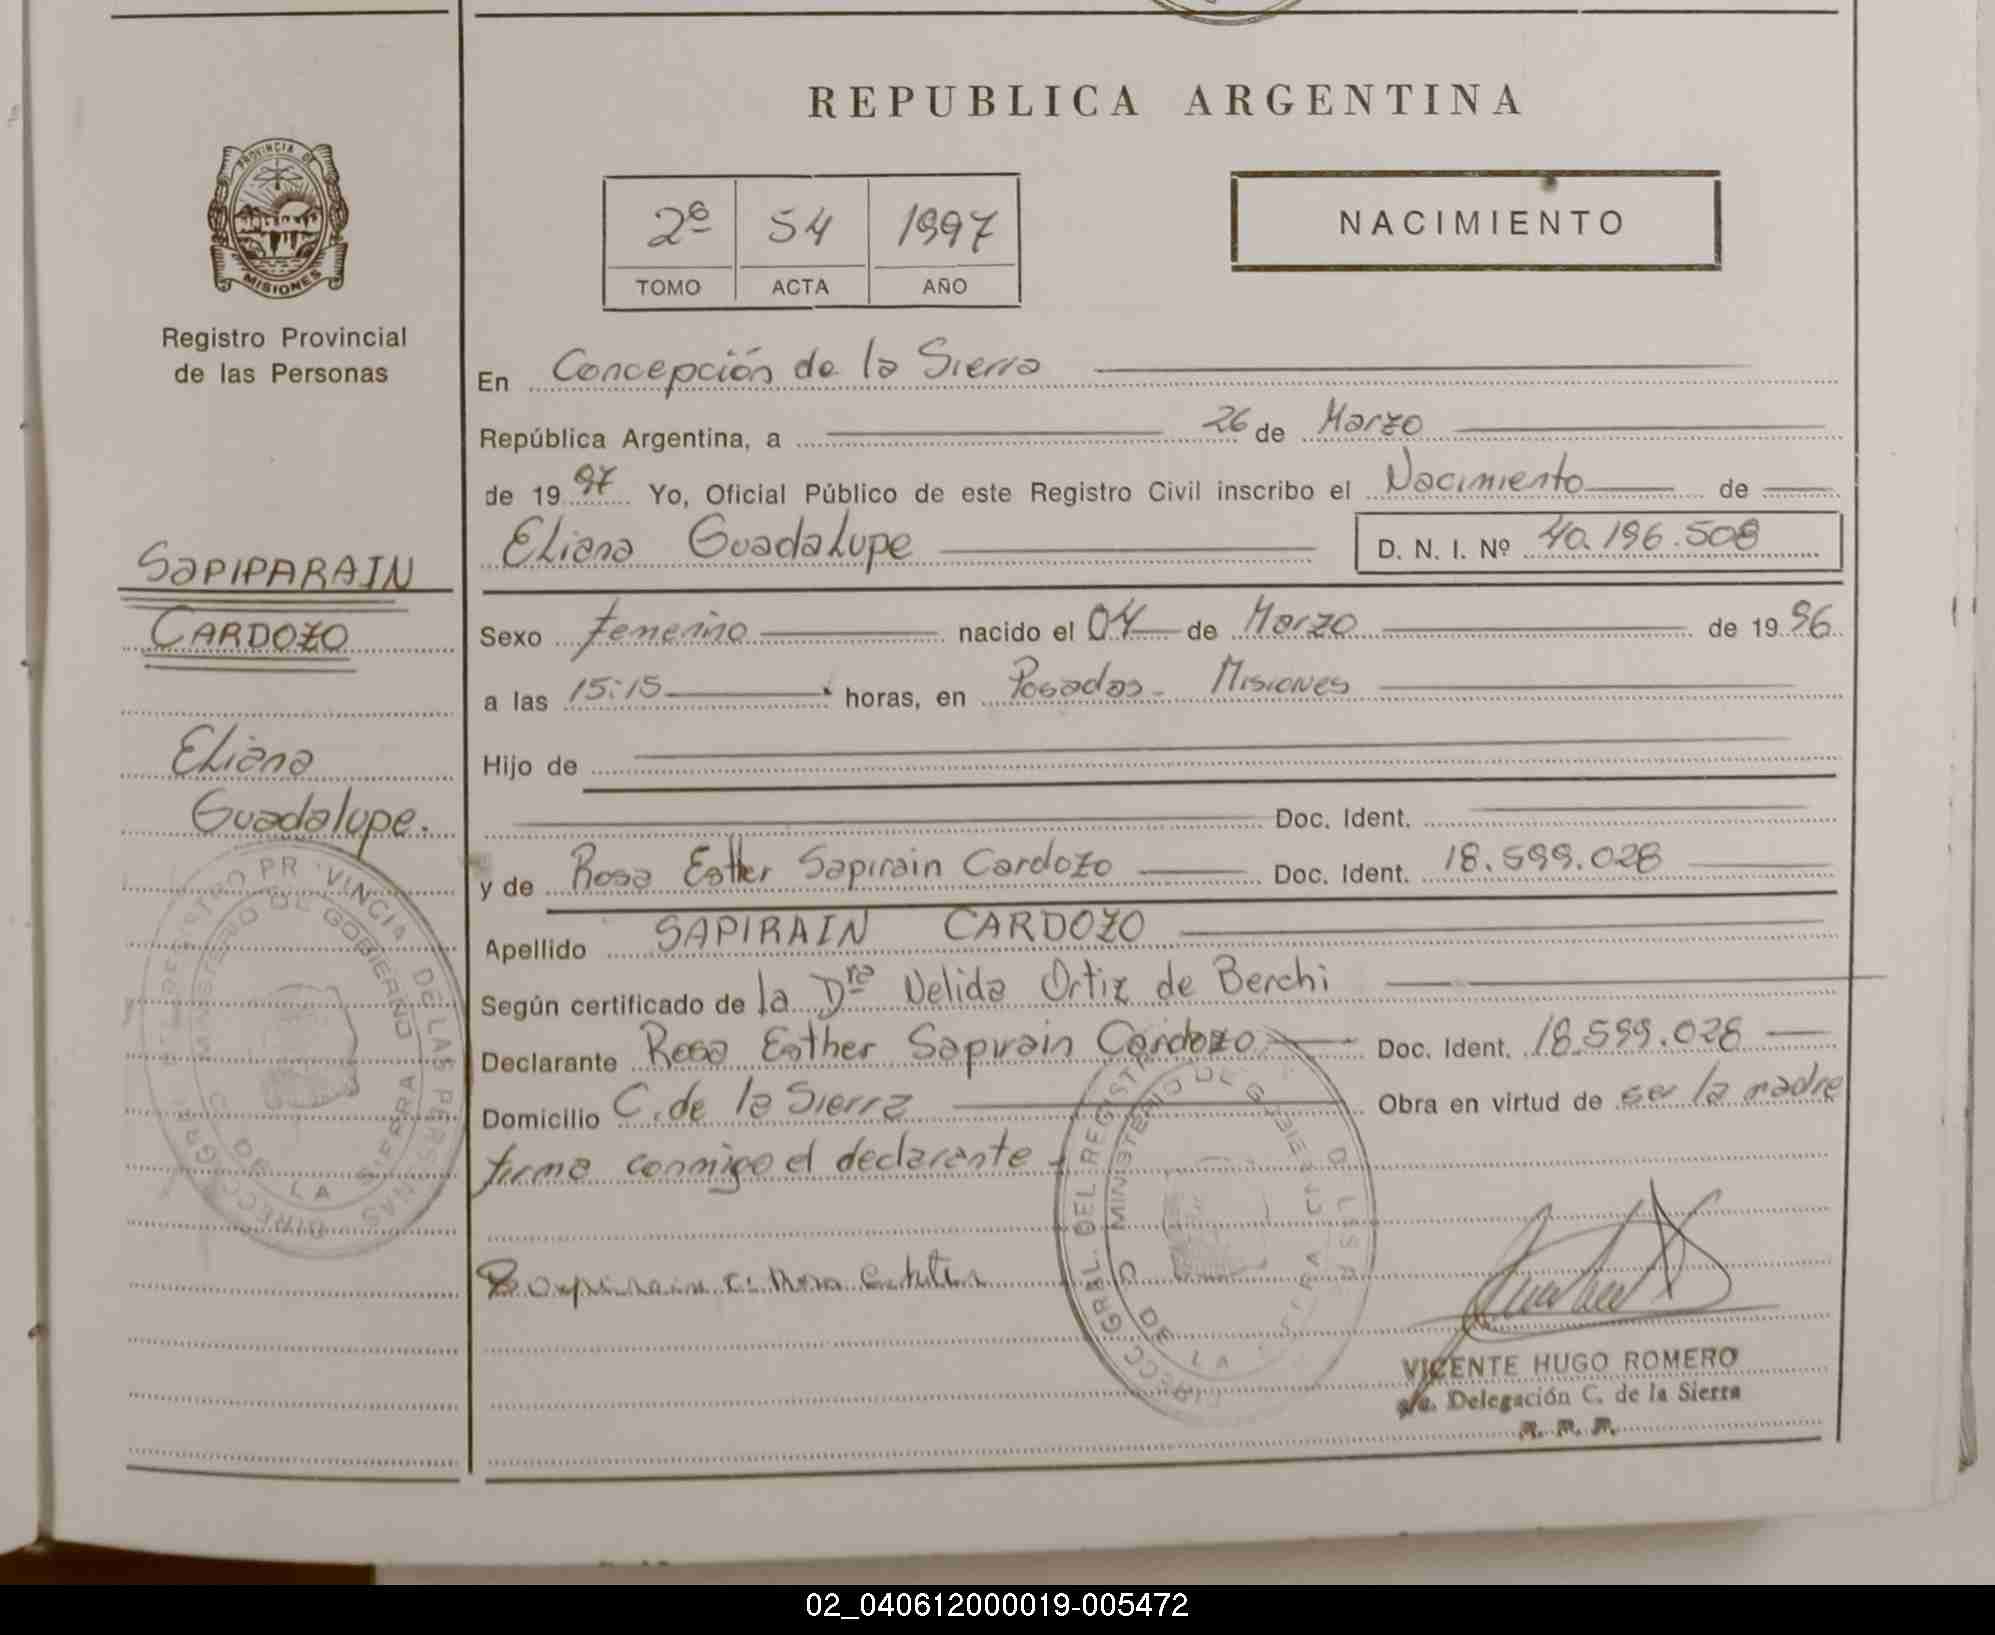 REPUBLICA ARGENTINA
PROVINCIA DE
MISIONES
Registro Provincial
de las Personas
2º 54 1997
TOMO ACTA AÑO
NACIMIENTO
En Concepción de la Sierra
República Argentina, a 26 de Marzo
de 1997 Yo, Oficial Público de este Registro Civil inscribo el Nacimiento de
Eliana Guadalupe D. N. I. Nº 40.196.508
SAPIPARAIN
CARDOZO
Eliana
Guadalupe.
Sexo femenino nacido el 04 de Marzo de 1996
a las 15:15 horas, en Posadas - Misiones
Hijo de
Doc. Ident.
y de Rosa Esther Sapirain Cardozo Doc. Ident. 18.599.028
Apellido SAPIRAIN CARDOZO
Según certificado de la Dra Nelida Ortiz de Berchi
Declarante Rosa Esther Sapirain Cardozo Doc. Ident. 18.599.028
Domicilio C. de la Sierra Obra en virtud de ser la madre
firma conmigo el declarante -
VICENTE HUGO ROMERO
a/c. Delegación C. de la Sierra
R. P. P.
02_040612000019-005472